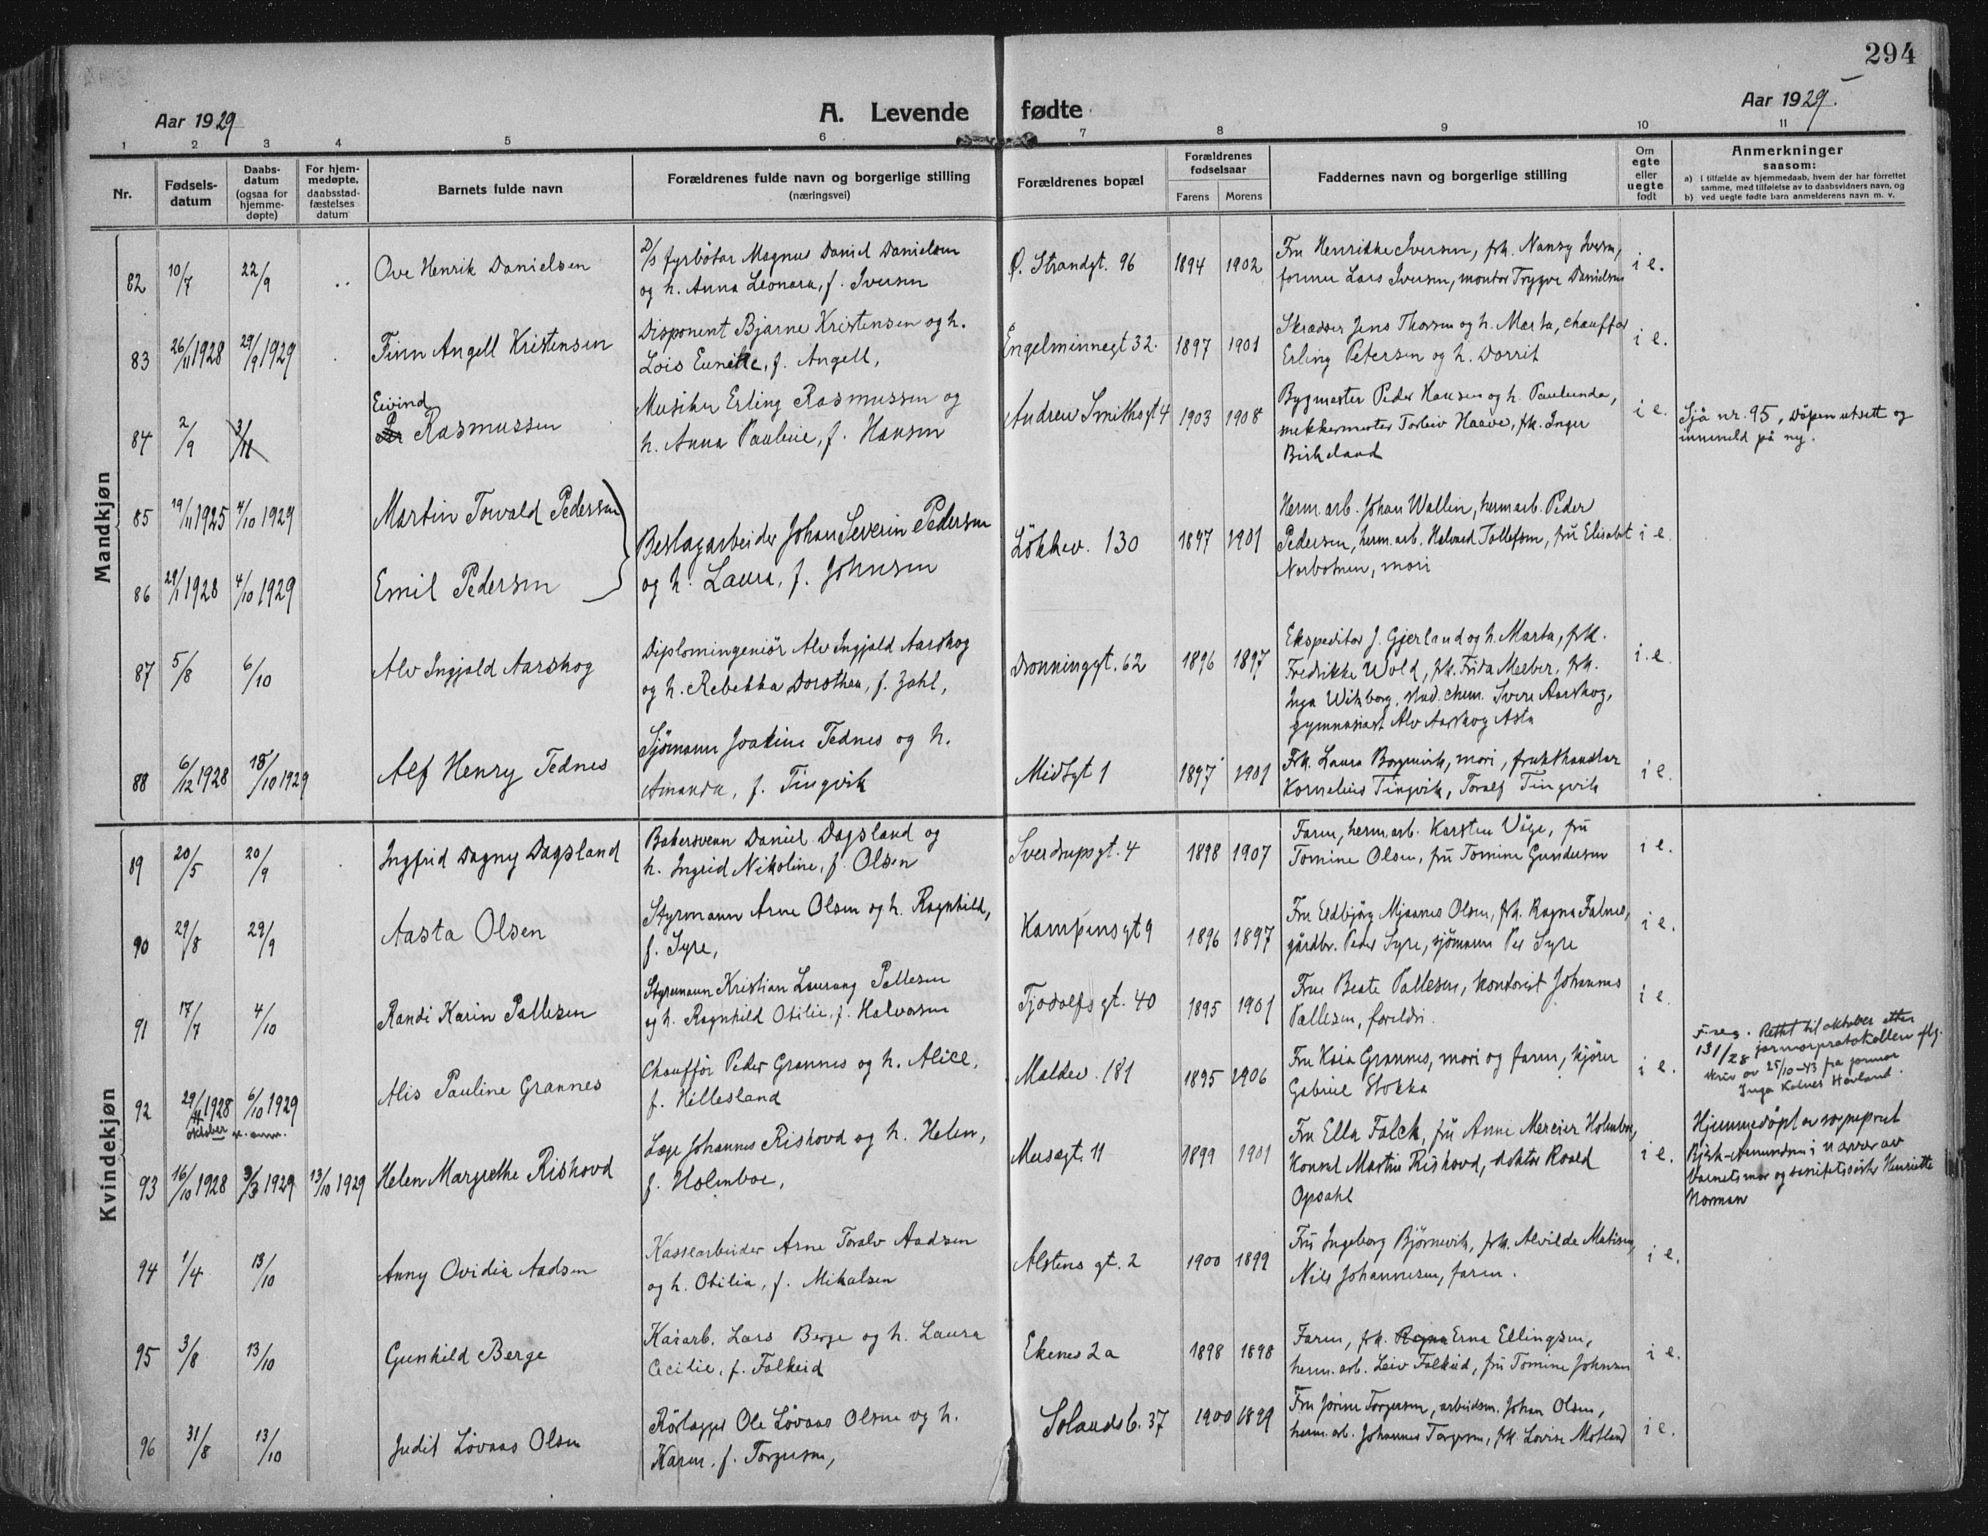 294
Aar 1929
A. Levende fødte
Aar 1929.
1 2 3 4 5 6 7 8 9 10 11
Nr.
Fødsels-
datum
Daabs-
datum
(ogsaa for
hjemme-
døpte)
For hjem-
medøpte,
daabsstad-
fæstelses
datum
Barnets fulde navn
Forældrenes fulde navn og borgerlige stilling
(næringsvei)
Forældrenes bopæl
Forældrenes
fødselsaar
Farens Morens
Faddernes navn og borgerlige stilling
Om
egte
eller
uegte
født
Anmerkninger
saasom:
a) I tilfælde av hjemmedaab, hvem der har forrettet
samme, med tilføielse av to daabsvidners navn, og
b) ved uegte fødte barn anmelderens navn m. v.
Mandkjøn
82 10/7 22/9 Ove Henrik Danielsen
D/S fyrbøter Magnus Daniel Danielsen
og h. Anna Leonara, f. Iversen
Ø. Strandgt. 96 1894 1902
Fru Henrikke Iversen, frk. Nansy Iversen,
former Lars Iversen, montør Trygve Danielsen
i e.
83 26/11 1928 29/9 1929 Finn Angell Kristensen
Disponent Bjarne Kristensen og h.
Lois Eunette, f. Angell,
Engelminnegt 32. 1897 1901
Skrædder Jens Thorsen og h. Marta, chauffør
Erling Petersen og h. Dorrit
i e.
84 2/9 3/11 Eivind
Rasmussen
Musiker Erling Rasmussen og
h. Anna Pauline, f. Hansen
Andrew Smithsgt 4 1903 1908
Bygmester Peder Hansen og h. Paulinda,
snekkermester Torleiv Haave, frk. Inger
Birkeland
i e.
Sjå nr. 95, Dåpen utsett og
innmeld på ny.
85 19/11 1925 4/10 1929 Martin Torvald Pedersen
86 29/1 1928 4/10 1929 Emil Pedersen
Beslagarbeider Johan Severin Pedersen
og h. Laura, f. Johnsen
Løkkev. 130 1897 1901
Herm. arb. Johan Wallin, herm arb. Peder
Pedersen, herm. arb. Halvard Tollefsen, fru Elisabet
Norbotnen, mori
i e.
87 5/8 6/10 Alv Ingjald Aarskog
Diplomingeniør Alv Ingjald Aarskog
og h. Rebekka Dorothea, f. Zahl,
Dronninggt. 62 1896 1897
Ekspeditør J. Gjerland og h. Marta, frk.
Fredrikke Wold, frk. Frida Melber, frk.
Inga Witzborg, stud. chem. Sverre Aarskog,
gymnasiast Alv Aarskog Asta
i. e.
88 6/12 1928 18/10 1929 Alf Henry Tednes
Sjømann Joakim Tednes og h.
Amanda, f. Tingvik
Midtgt 1 1897 1901
Frk. Laura Borgevik, mori, frukthandlar
Kornelius Tingvik, Toralf Tingvik
i e.
Kvindekjøn
89 20/5 20/9 Ingfrid Dagny Dagsland
Bakersvenn Daniel Dagsland og
h. Ingrid Nikoline, f. Olsen
Sverdrupsgt. 4 1898 1907
Faren, herm. arb. Karsten Våge, fru
Tomine Olsen, fru Tomine Gundersen
i e.
90 29/8 29/9 Aasta Olsen
Styrmann Arne Olsen og h. Ragnhild,
f. Syre,
Kampensgt 9 1896 1897
Fru Eldbjörg Mjaanes Olsen, frk. Ragna Falnes,
gårdbr. Peder Syre, sjømann Per Syre
i e.
91 17/7 4/10 Randi Karin Pallesen
Styrmann Kristian Laurang Pallesen
og h. Ragnhild Otilie, f. Halvorsen
Tjodolfsgt. 40 1895 1901
Frue Beate Pallesen, kontorist Johannes
Pallesen, foreldri.
i e.
92 29/11 1928 6/10 1929
oktober se. anm.
Alis Pauline Grannes
Chauffør Peder Grannes og h. Alice,
f. Hillesland
Maldev. 181 1895 1906
Fru Kaia Grannes, mori og faren, kjører
Gabriel Stokka
i e.
F.reg. Rettet til oktober etter
131/28 jormorprotokollen flg.
skriv av 25/10-43 fra jormor
Inga Kalnes Hovland.
93 16/10 1928 3/3 1929 13/10 1929 Helen Margrethe Rishovd
Læge Johannes Rishovd og h. Helen,
f. Holmboe,
Musegt. 11 1899 1901
Fru Ella Falck, fru Anne Mercier Holmboe,
Konsul Martin Rishovd, doktor Roald
Opsahl
i e.
Hjemmedøpt av sogneprest
Bjerk-Amundsen i nærver av
barnets mor og sanitetssøster Henriette
Norman
94 1/4 13/10 Anny Ovidia Aadsen
Kassearbeider Arne Toralv Aadsen
og h. Otilia, f. Mikalsen
Alstens gt. 2 1900 1899
Fru Ingeborg Bjørnevik, frk. Alvilde Matisen,
Nils Johannesen, faren.
i e.
95 3/8 13/10 Gunhild Berge
Kaiarb. Lars Berge og h. Laura
Cecilie, f. Falkeid
Ekenes 2a 1898 1898
Faren, frk. Ragna Erna Ellingsen,
herm. arb. Leiv Falkeid, fru Tomine Johnsen
i e.
96 31/8 13/10 Judit Løvaas Olsen
Rørlegger Ole Løvaas Olsen og h.
Karen, f. Torgersen,
Solandsb. 37 1900 1899
Fru Jorine Torgersen, arbeidsm. Johan Olsen,
herm. arb. Johannes Torgersen, frk. Lovise Motland
i e.